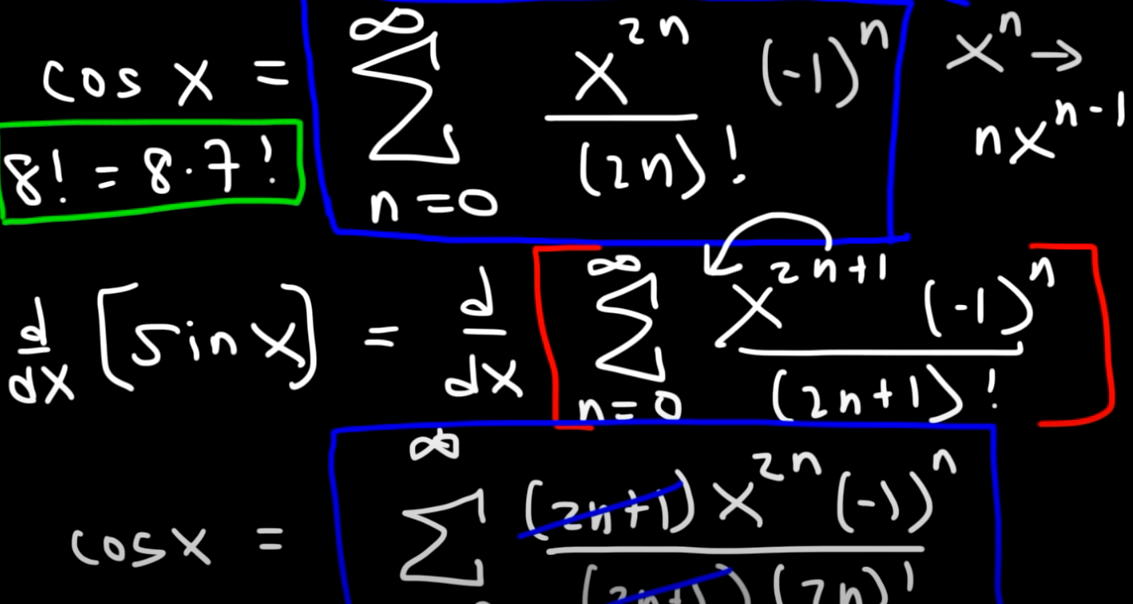 cos x = ∞ Σ n=0 x^2n / (2n)! (-1)^n
x^n →
nx^n-1
8! = 8·7!
d/dx [sin x] = d/dx [∞ Σ n=0 x^2n+1 (-1)^n / (2n+1)!]
cos x = ∞ Σ (2n+1) x^2n (-1)^n / (2n+1) (2n)!